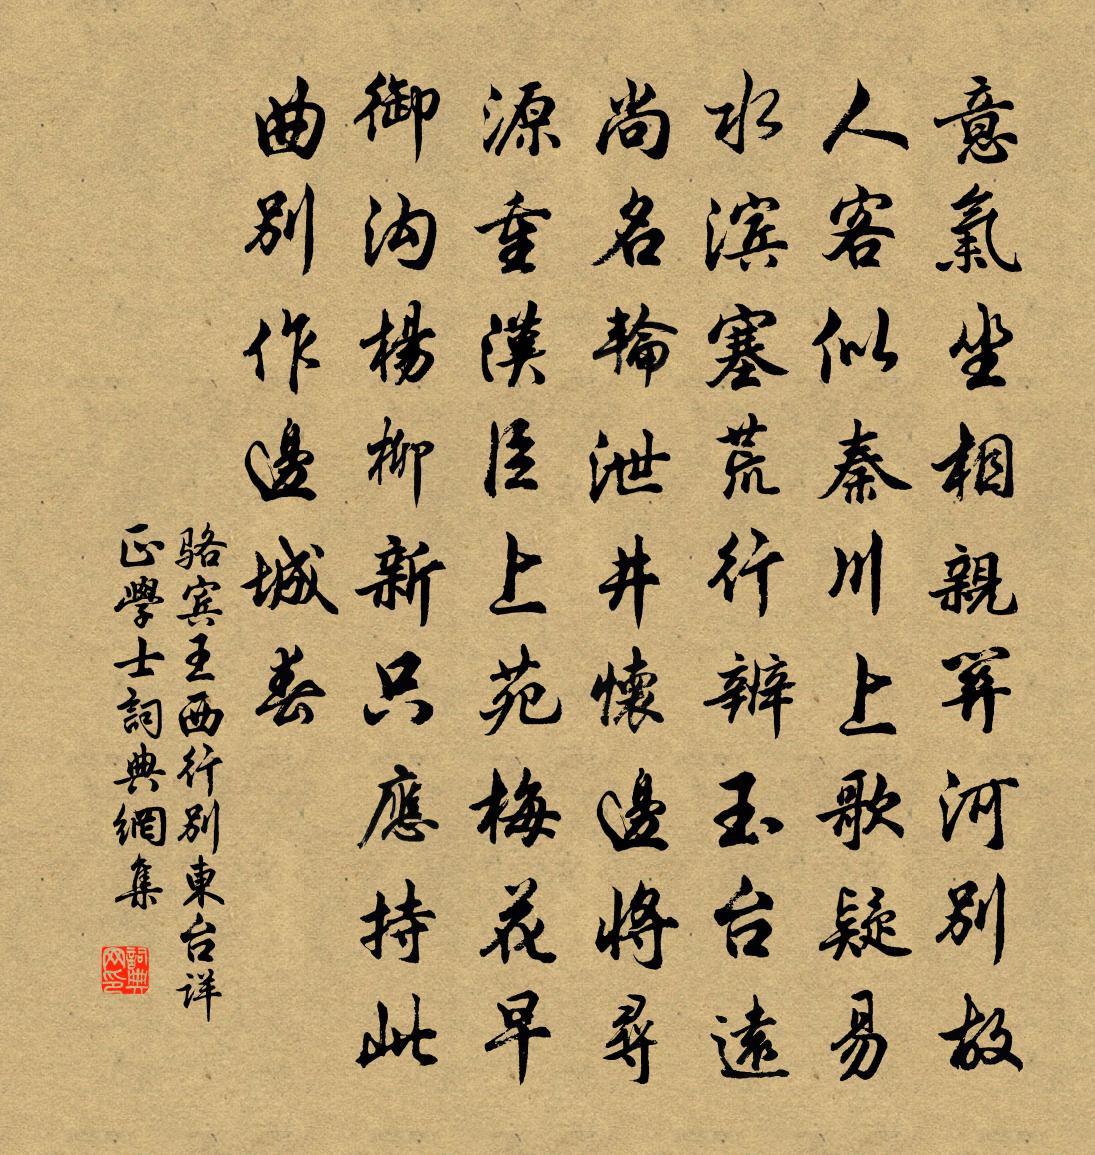 意氣坐相親關河別故
人客似秦川上歌疑易
水滨塞荒行辨玉台遠
尚名輪泄井懷邊將尋
源重漢臣上苑梅花早
御沟楊柳新只應持此
曲別作邊城春
骆宾王西行別東台详
正學士詞典網集
詞典
网印